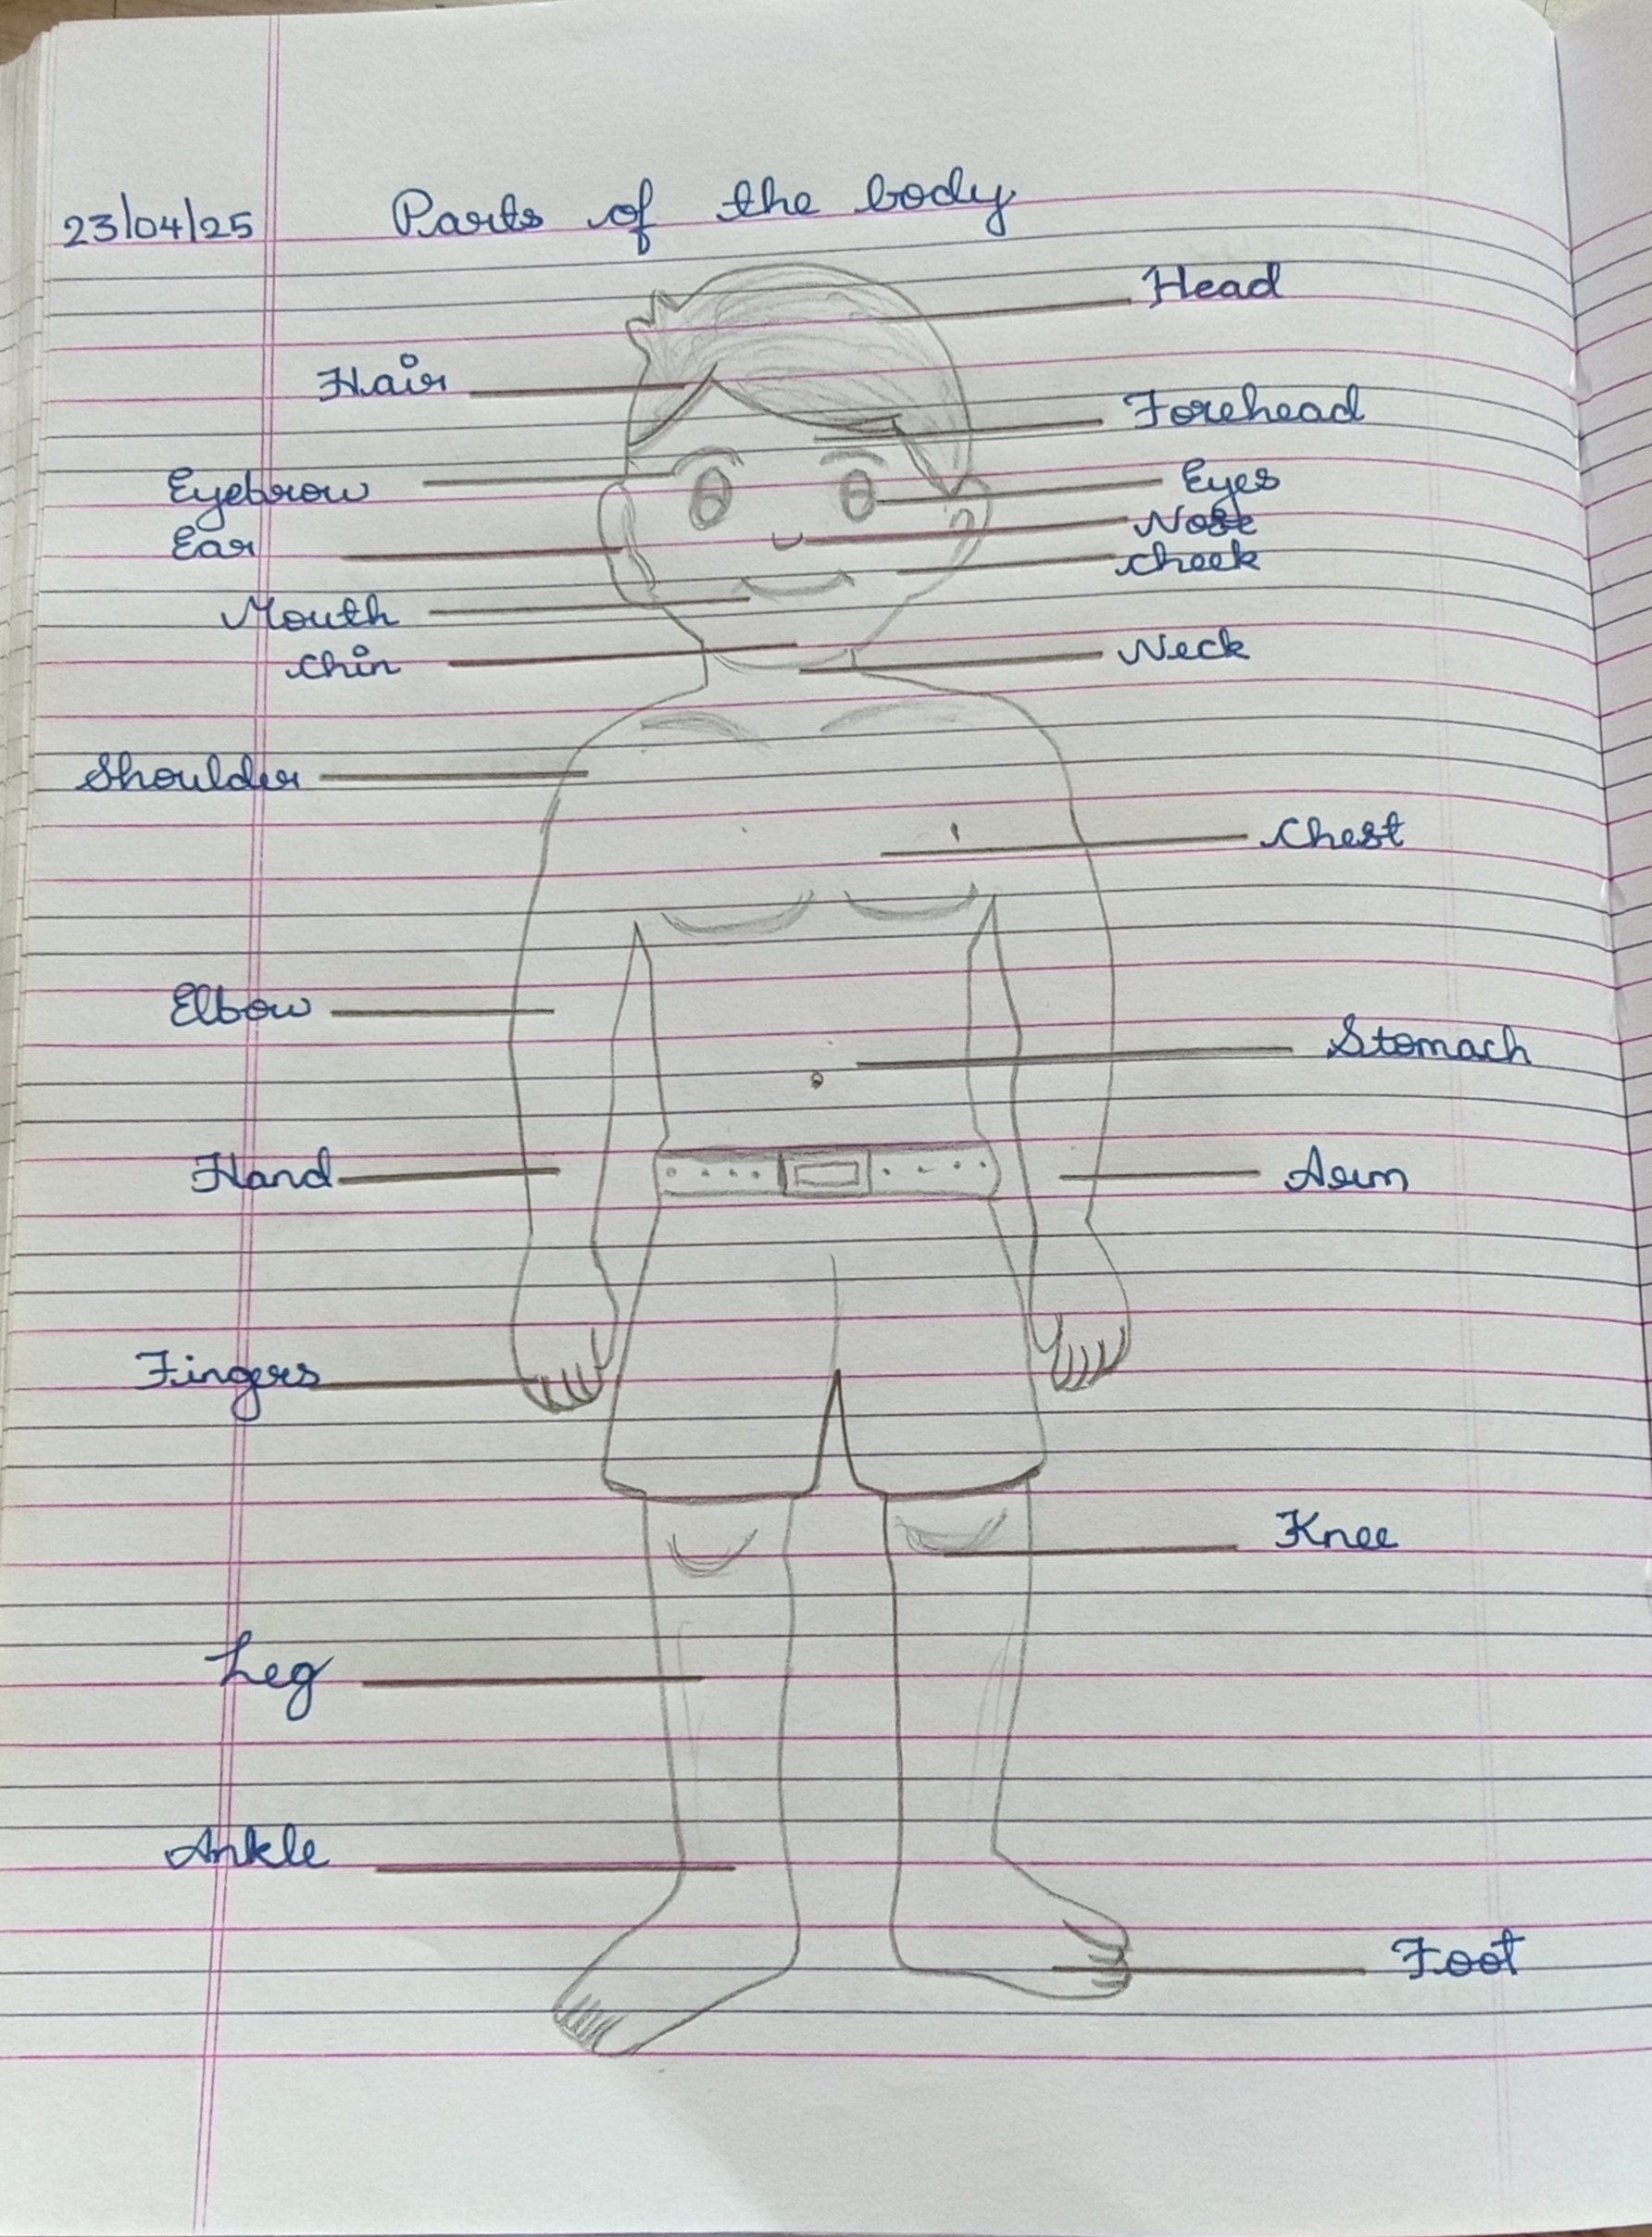 23/04/25 Parts of the body
Head
Hair
Forehead
Eyebrow
Eyes
Nose
Ear
cheek
Mouth
Chin
Neck
Shoulder
Chest
Elbow
Stomach
Hand
Arm
Fingers
Knee
Leg
Ankle
Foot